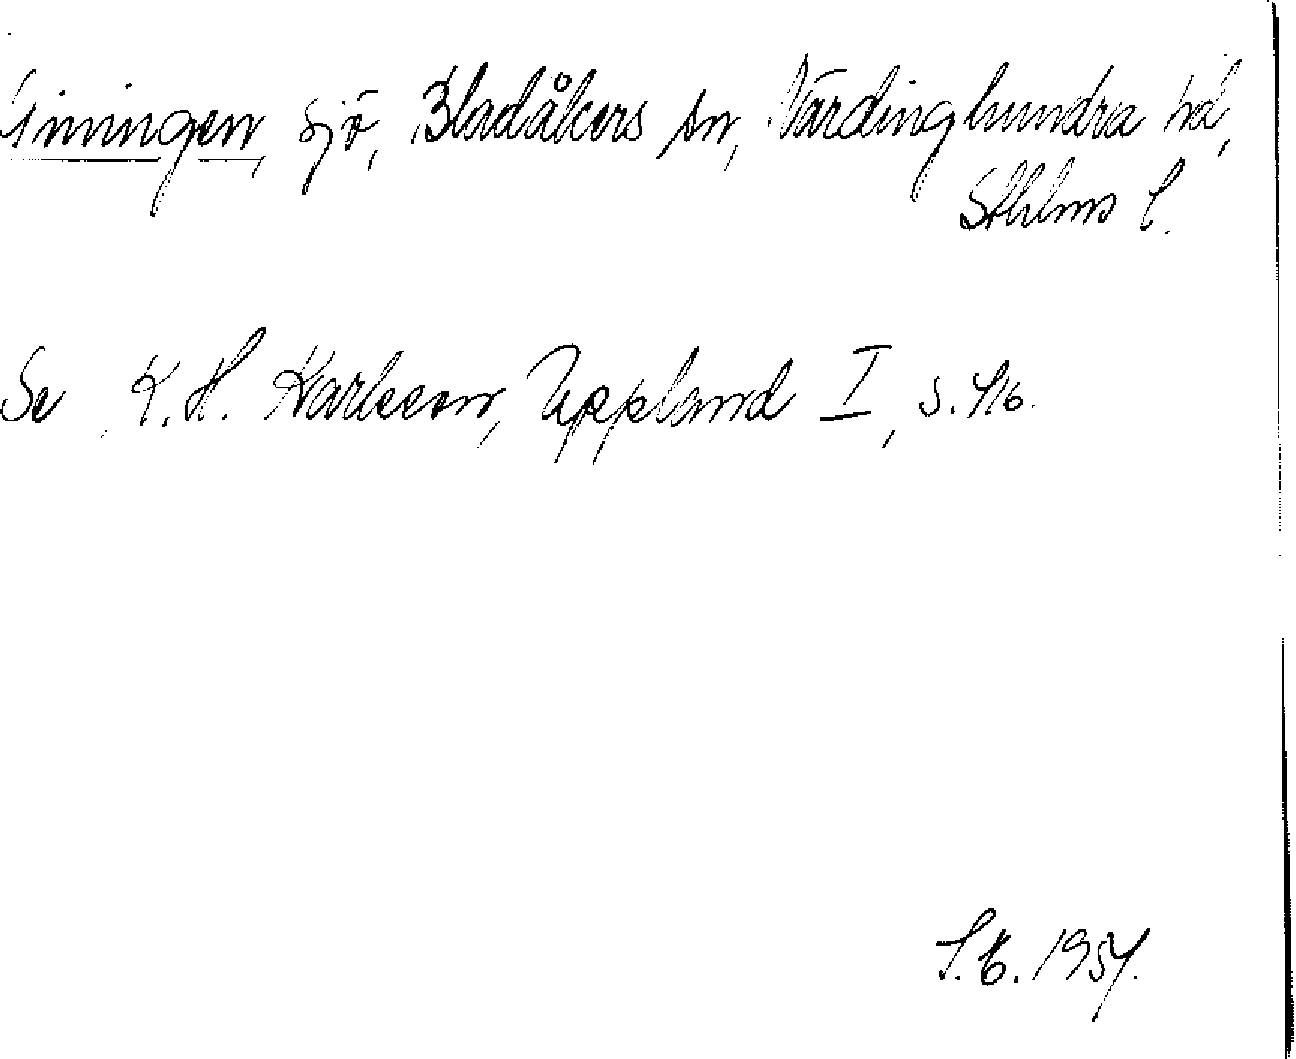 Giningen, sjö, Bladåkers sn, Närdinghundra hd,
Sthlms l.
Se K. H. Karlsson, Uppland I, s. 416.
S. E. 1954.